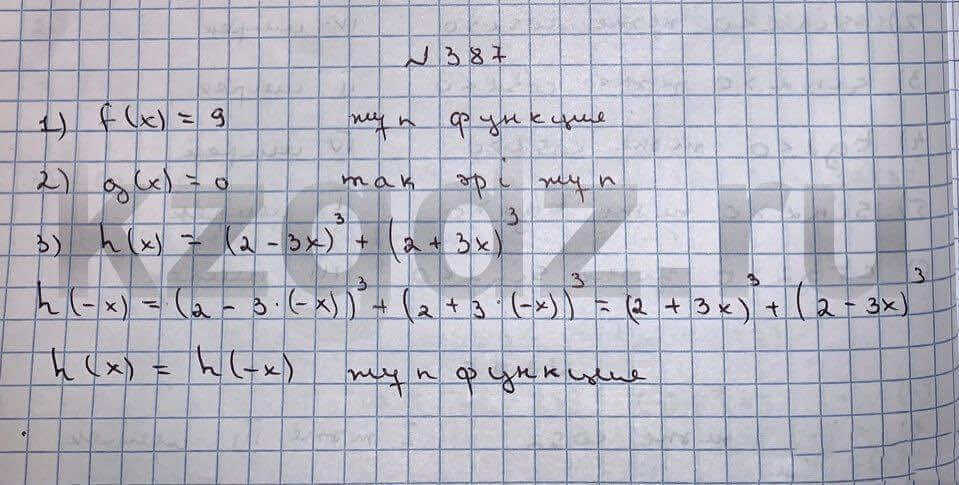 №387
1) f(x) = 9 жұп функция
2) g(x) = 0 тақ әрі жұп
3) h(x) = (2 - 3x)³ + (2 + 3x)³
h(-x) = (2 - 3·(-x))³ + (2 + 3·(-x))³ = (2 + 3x)³ + (2 - 3x)³
h(x) = h(-x) жұп функция
kzgdz.ru